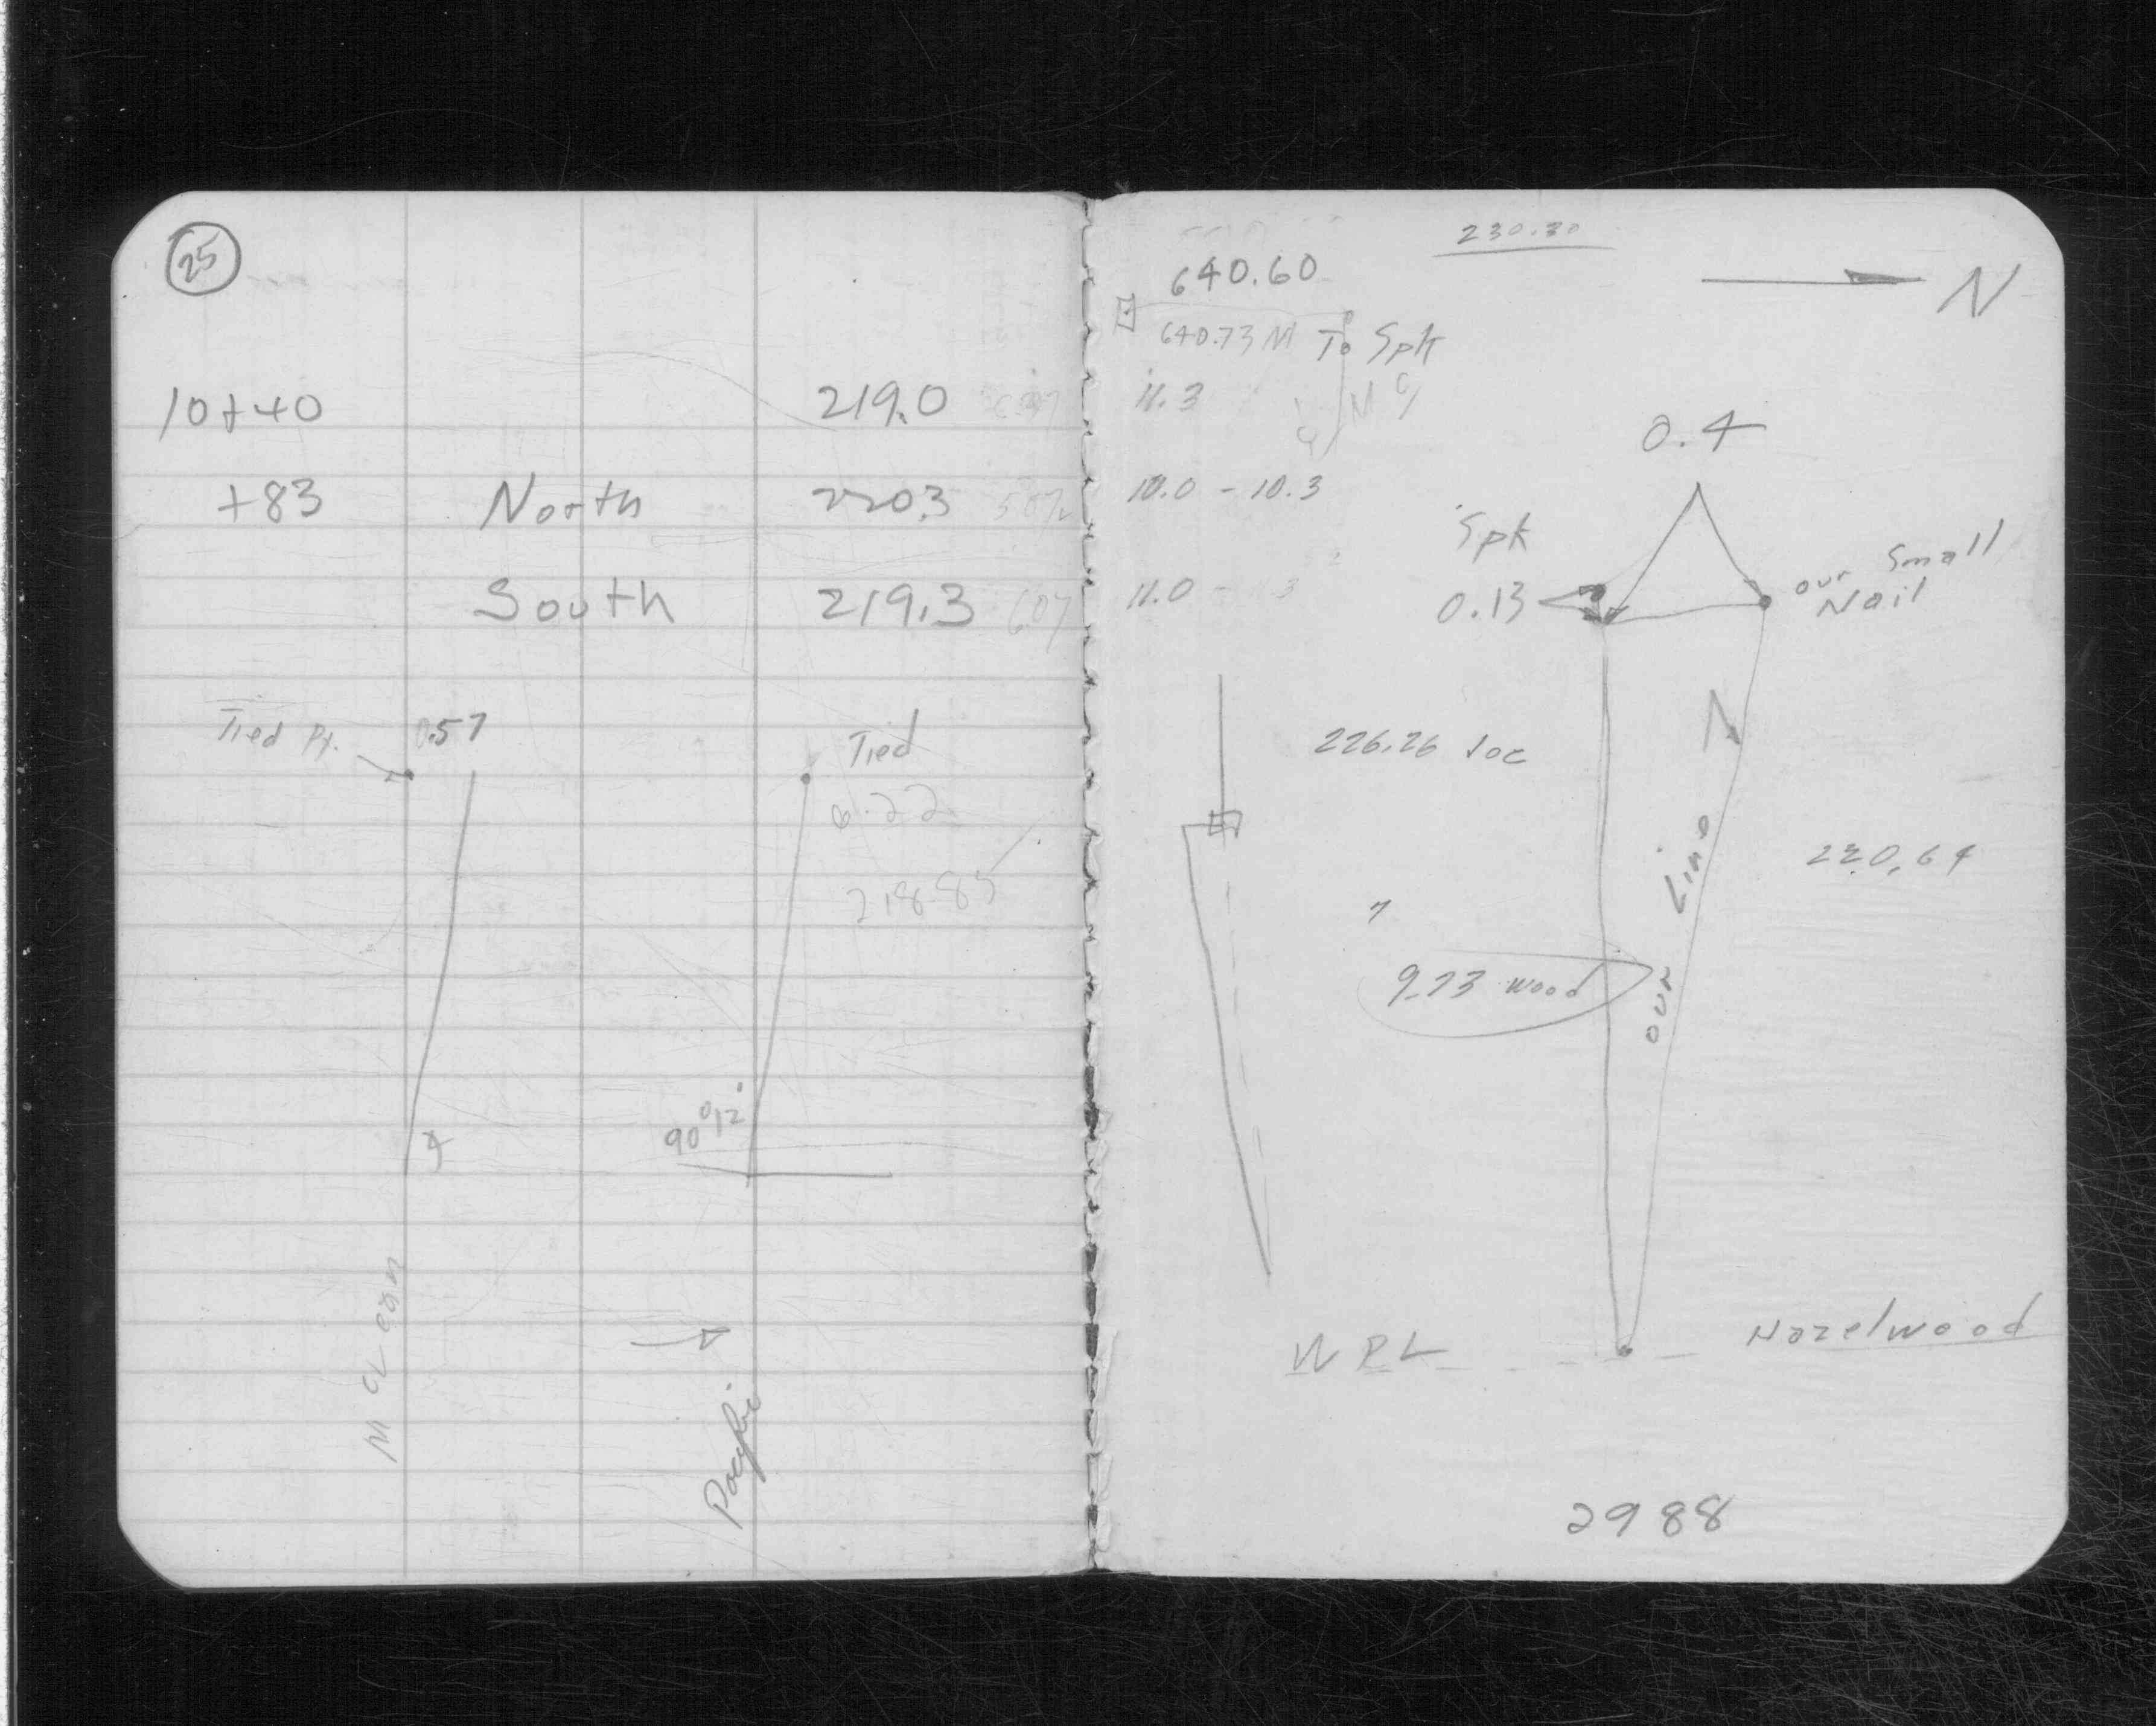 25
10+40 219.0
+83 North 220.3
South 219.3
Tied Pt. 0.57
Tied
6.22
218.85
90°12'
McLean
230.30
640.60
N
640.73 M To Spk
11.3
10.0 - 10.3
11.0
0.4
Spk
0.13
our Small
Nail
226.26
220.64
our Line
9.73 wood
WPL
Hazelwood
2988